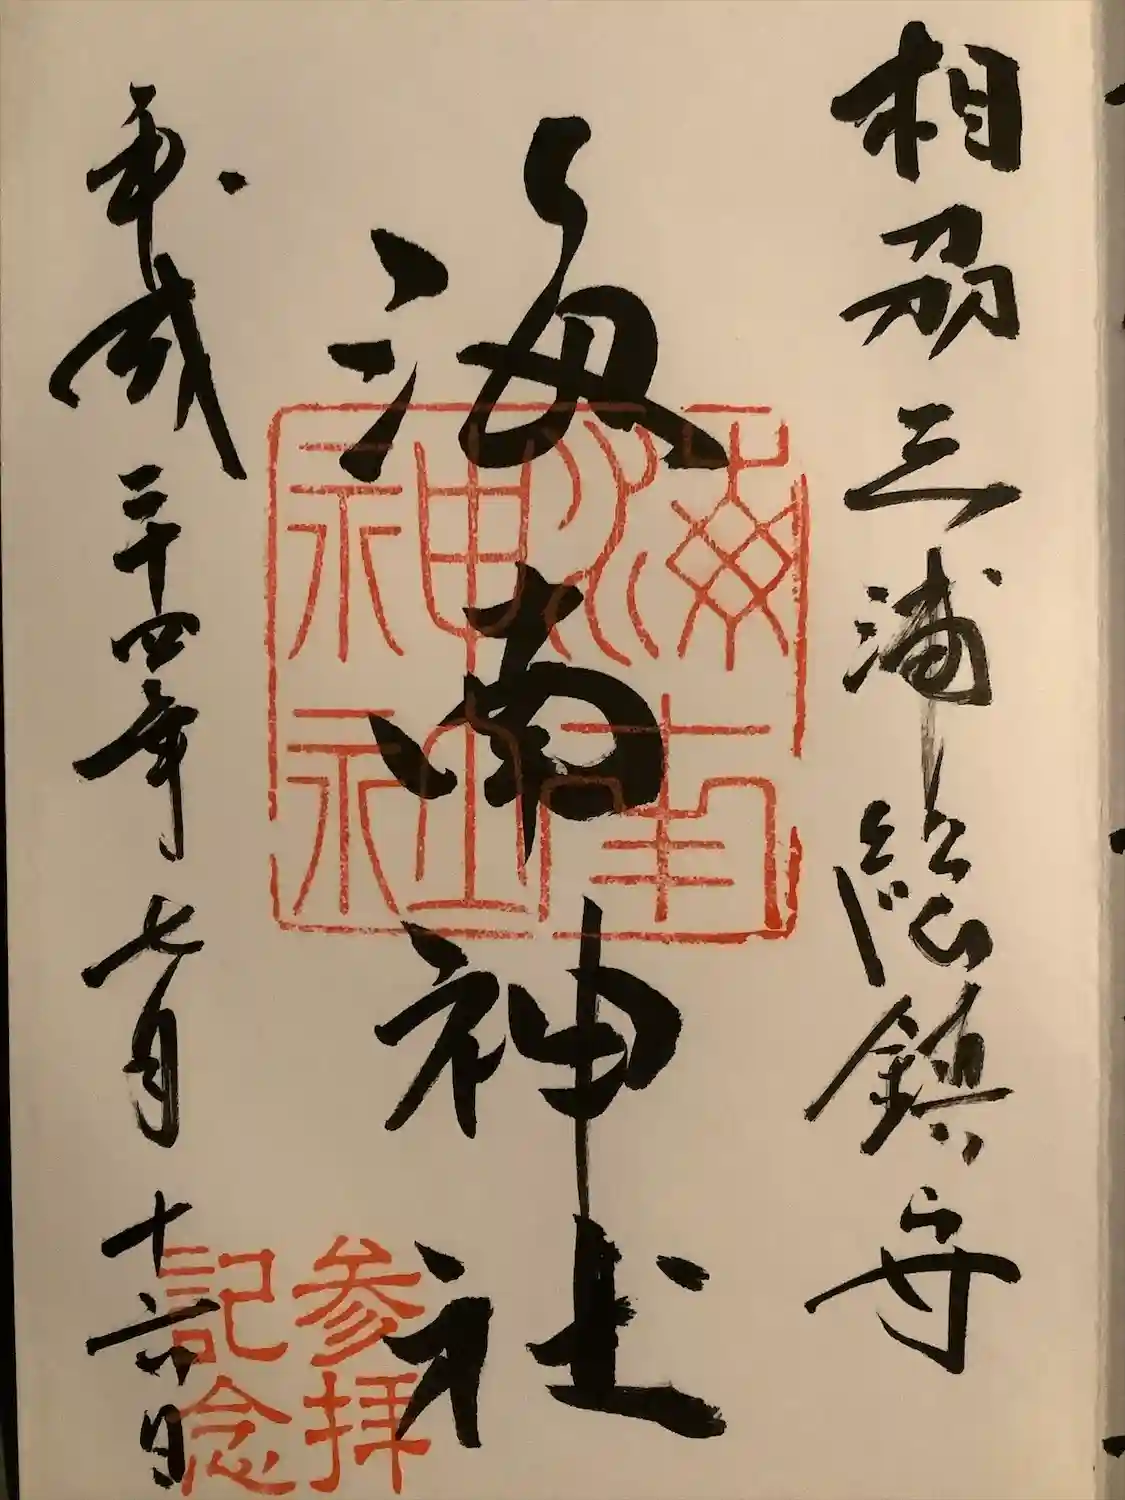 相州三浦総鎮守
海南神社
平成二十四年七月十六日
海南神社
参拝記念